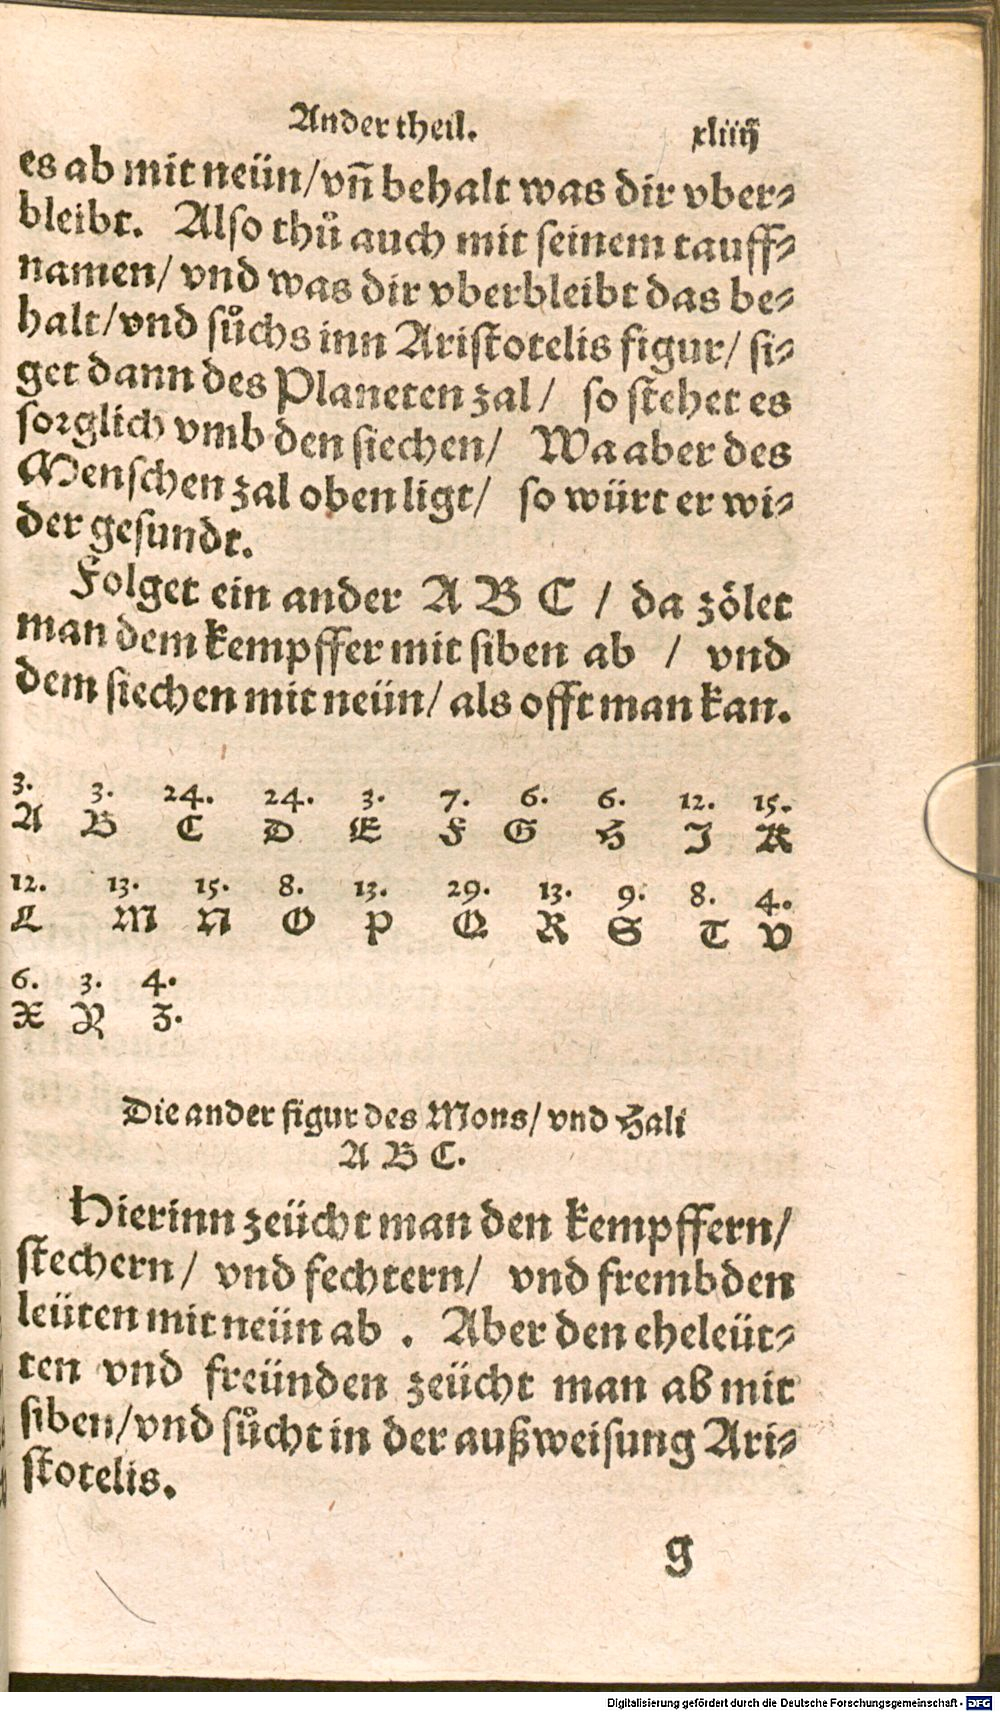 Ander theil. xliiij
es ab mit neün/ vñ behalt was dir vber⸗
bleibt. Also thů auch mit seinem tauff⸗
namen/ vnd was dir vberbleibt das be⸗
halt/ vnd sůchs inn Aristotelis figur/ si⸗
get dann des Planeten zal/ so stehet es
sorglich vmb den siechen/ Wa aber des
Menschen zal oben ligt/ so würt er wi⸗
der gesundt.
Folget ein ander A B C / da zölet
man dem kempffer mit siben ab / vnd
dem siechen mit neün/ als offt man kan.
3. 3. 24. 24. 3. 7. 6. 6. 12. 15.
A B C D E F G H I K
12. 13. 15. 8. 13. 29. 13. 9. 8. 4.
L M N O P Q R S T V
6. 3. 4.
X Y Z.
Die ander figur des Mons/ vnd Hali
A B C.
Hierinn zeücht man den kempffern/
stechern/ vnd fechtern/ vnd frembden
leüten mit neün ab . Aber den eheleüt⸗
ten vnd freünden zeücht man ab mit
siben/ vnd sůcht in der außweisung Ari⸗
stotelis.
g
Digitalisierung gefördert durch die Deutsche Forschungsgemeinschaft - DFG